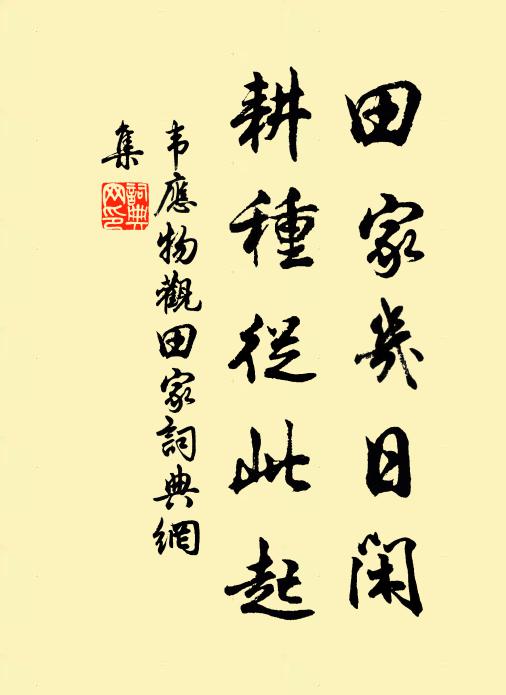 田家幾日閑
耕種從此起
韦應物觀田家詞典網
集
詞典
网印